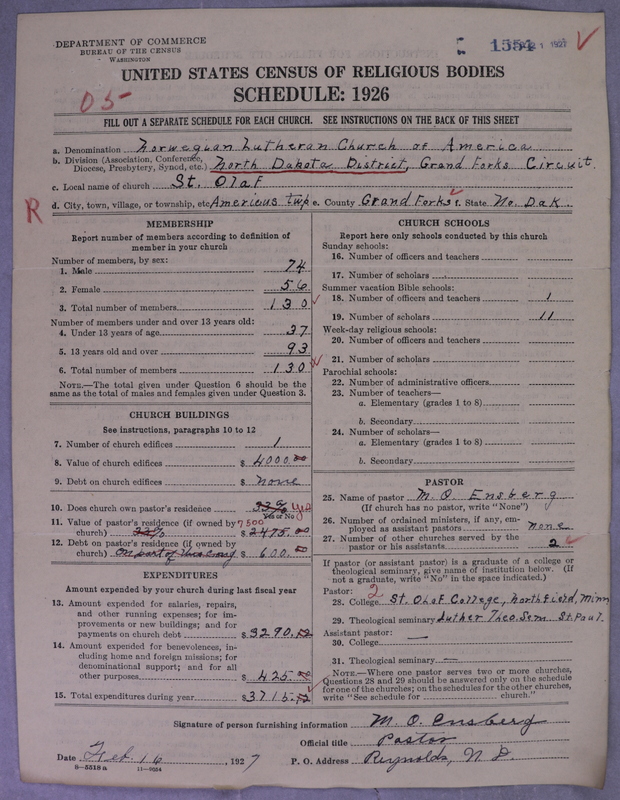 DEPARTMENT OF COMMERCE
BUREAU OF THE CENSUS
WASHINGTON
1554
1 1927
UNITED STATES CENSUS OF RELIGIOUS BODIES
SCHEDULE: 1926
05-
FILL OUT A SEPARATE SCHEDULE FOR EACH CHURCH. SEE INSTRUCTIONS ON THE BACK OF THIS SHEET
a. Denomination Norwegian Lutheran Church of America
b. Division (Association, Conference, Diocese, Presbytery, Synod, etc.) North Dakota District, Grand Forks Circuit.
c. Local name of church St. Olaf
R
d. City, town, village, or township, etc. Americus twp e. County Grand Forks f. State No. Dak.
MEMBERSHIP
Report number of members according to definition of
member in your church
Number of members, by sex:
1. Male 74
2. Female 56
3. Total number of members 130
Number of members under and over 13 years old:
4. Under 13 years of age 37
5. 13 years old and over 93
6. Total number of members 130
NOTE.—The total given under Question 6 should be the
same as the total of males and females given under Question 3.
CHURCH BUILDINGS
See instructions, paragraphs 10 to 12
7. Number of church edifices 1
8. Value of church edifices $ 4000.00
9. Debt on church edifices $ none
10. Does church own pastor's residence 33% yes
Yes or No
11. Value of pastor's residence (if owned by 7500
church) 33% $ 2475.00
12. Debt on pastor's residence (if owned by
church) $ 600.00
EXPENDITURES
Amount expended by church during last fiscal year
13. Amount expended for salaries, repairs,
and other running expenses; for im-
provements or new buildings; and for
payments on church debt $ 3290.52
14. Amount expended for benevolences, in-
cluding home and foreign missions; for
denominational support; and for all
other purposes $ 425.00
15. Total expenditures during year $ 3715.52
CHURCH SCHOOLS
Report here only schools conducted by this church
Sunday schools:
16. Number of officers and teachers
17. Number of scholars
Summer vacation Bible schools:
18. Number of officers and teachers 1
19. Number of scholars 11
Week-day religious schools:
20. Number of officers and teachers
21. Number of scholars
Parochial schools:
22. Number of administrative officers
23. Number of teachers—
a. Elementary (grades 1 to 8)
b. Secondary
24. Number of scholars—
a. Elementary (grades 1 to 8)
b. Secondary
PASTOR
25. Name of pastor M. O. Ensberg
(If church has no pastor, write "None")
26. Number of ordained ministers, if any, em-
ployed as assistant pastors none
27. Number of other churches served by the
pastor or his assistants 2
If pastor (or assistant pastor) is a graduate of a college or
theological seminary, give name of institution below. (If
not a graduate, write "No" in the space indicated.)
Pastor: 2
28. College St. Olaf College, Northfield, Minn
29. Theological seminary Luther Theo. Sem. St. Paul.
Assistant pastor:
30. College —
31. Theological seminary —
NOTE.—Where one pastor serves two or more churches,
Questions 28 and 29 should be answered only on the schedule
for one of the churches; on the schedules for the other churches,
write "See schedule for church."
Signature of person furnishing information M. O. Ensberg
Official title Pastor
Date Feb. 16, 1927 P. O. Address Reynolds, N. D.
8—5518 a 11—8654